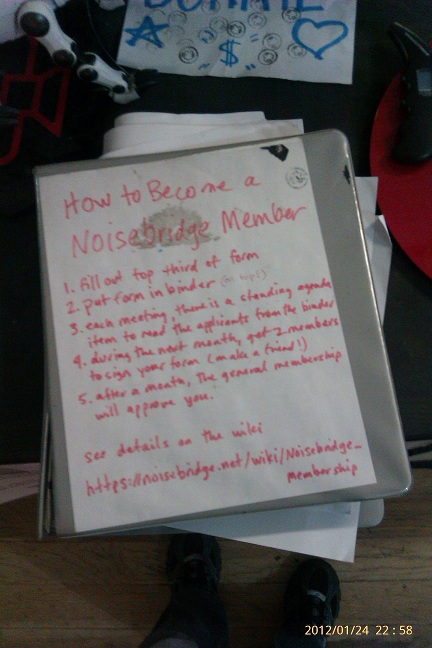 DONATE
$
How to Become a
Noisebridge Member
1. fill out top third of form
2. put form in binder (on top!)
3. each meeting, there is a standing agenda
item to read the applicants from the binder
4. during the next month, get 2 members
to sign your form (make a friend!)
5. after a month, the general membership
will approve you.
see details on the wiki
https://noisebridge.net/wiki/Noisebridge_
Membership
2012/01/24 22:58